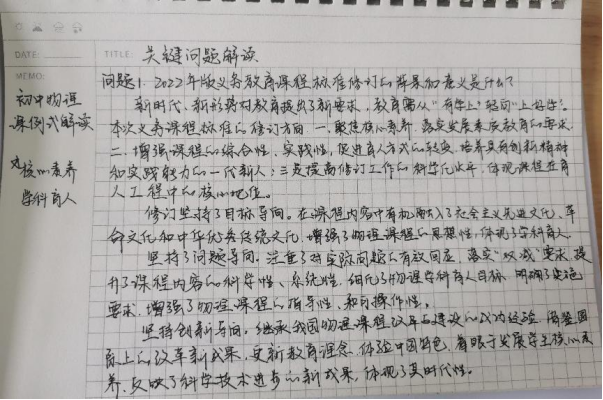 DATE:
TITLE: 关键问题解读
MEMO:
初中物理
课例式解读
核心素养
学科育人
问题1. 2022年版义务教育课程标准修订的背景和意义是什么?
新时代、新形势对教育提出了新要求，教育需从"有学上"转向"上好学"。
本次义务课程标准的修订方向 一、聚焦核心素养，落实发展素质教育的要求.
二、增强课程的综合性、实践性，促进育人方式的转变，培养具有创新精神
和实践能力的一代新人；三是提高修订工作的科学化水平，体现课程在育
人工程中的核心地位。
修订坚持了目标导向。在课程内容中有机融入了社会主义先进文化、革
命文化和中华优秀传统文化，增强了物理课程的思想性，体现了学科育人。
坚持了问题导向。注重了对实际问题的有效回应，落实"双减"要求，提
升了课程内容的科学性、系统性，细化了物理学科育人目标，明确了实施
要求，增强了物理课程的指导性、和可操作性。
坚持创新导向。继承我国物理课程改革与建设的成功经验，借鉴国
际上的改革新成果，更新教育理念，体验中国特色，着眼于发展学生核心素
养、反映了科学技术进步的新成果，体现了其时代性。